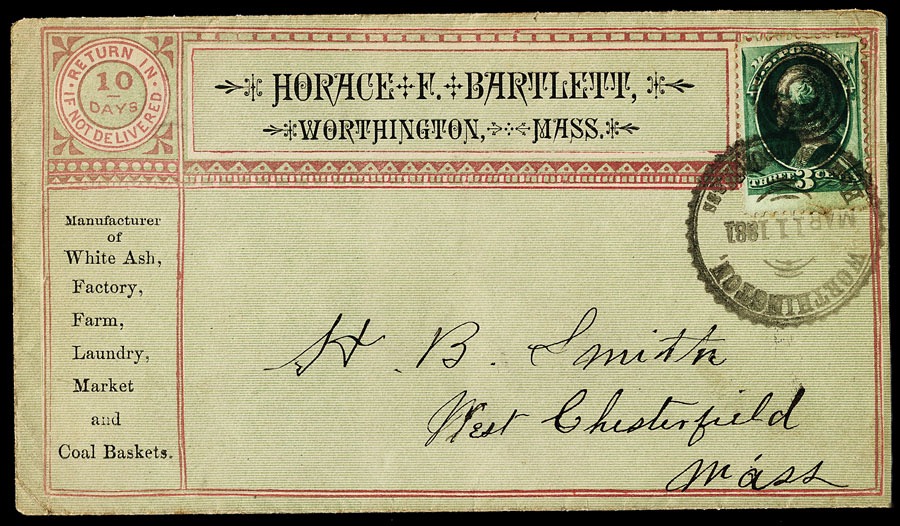 RETURN IN
10
DAYS
IF NOT DELIVERED
HORACE F. BARTLETT,
WORTHINGTON, MASS.
THREE 3 CENTS
MAR 11 1881
WORTHINGTON,
Manufacturer
of
White Ash,
Factory,
Farm,
Laundry,
Market
and
Coal Baskets.
H. B. Smith
West Chesterfield
Mass